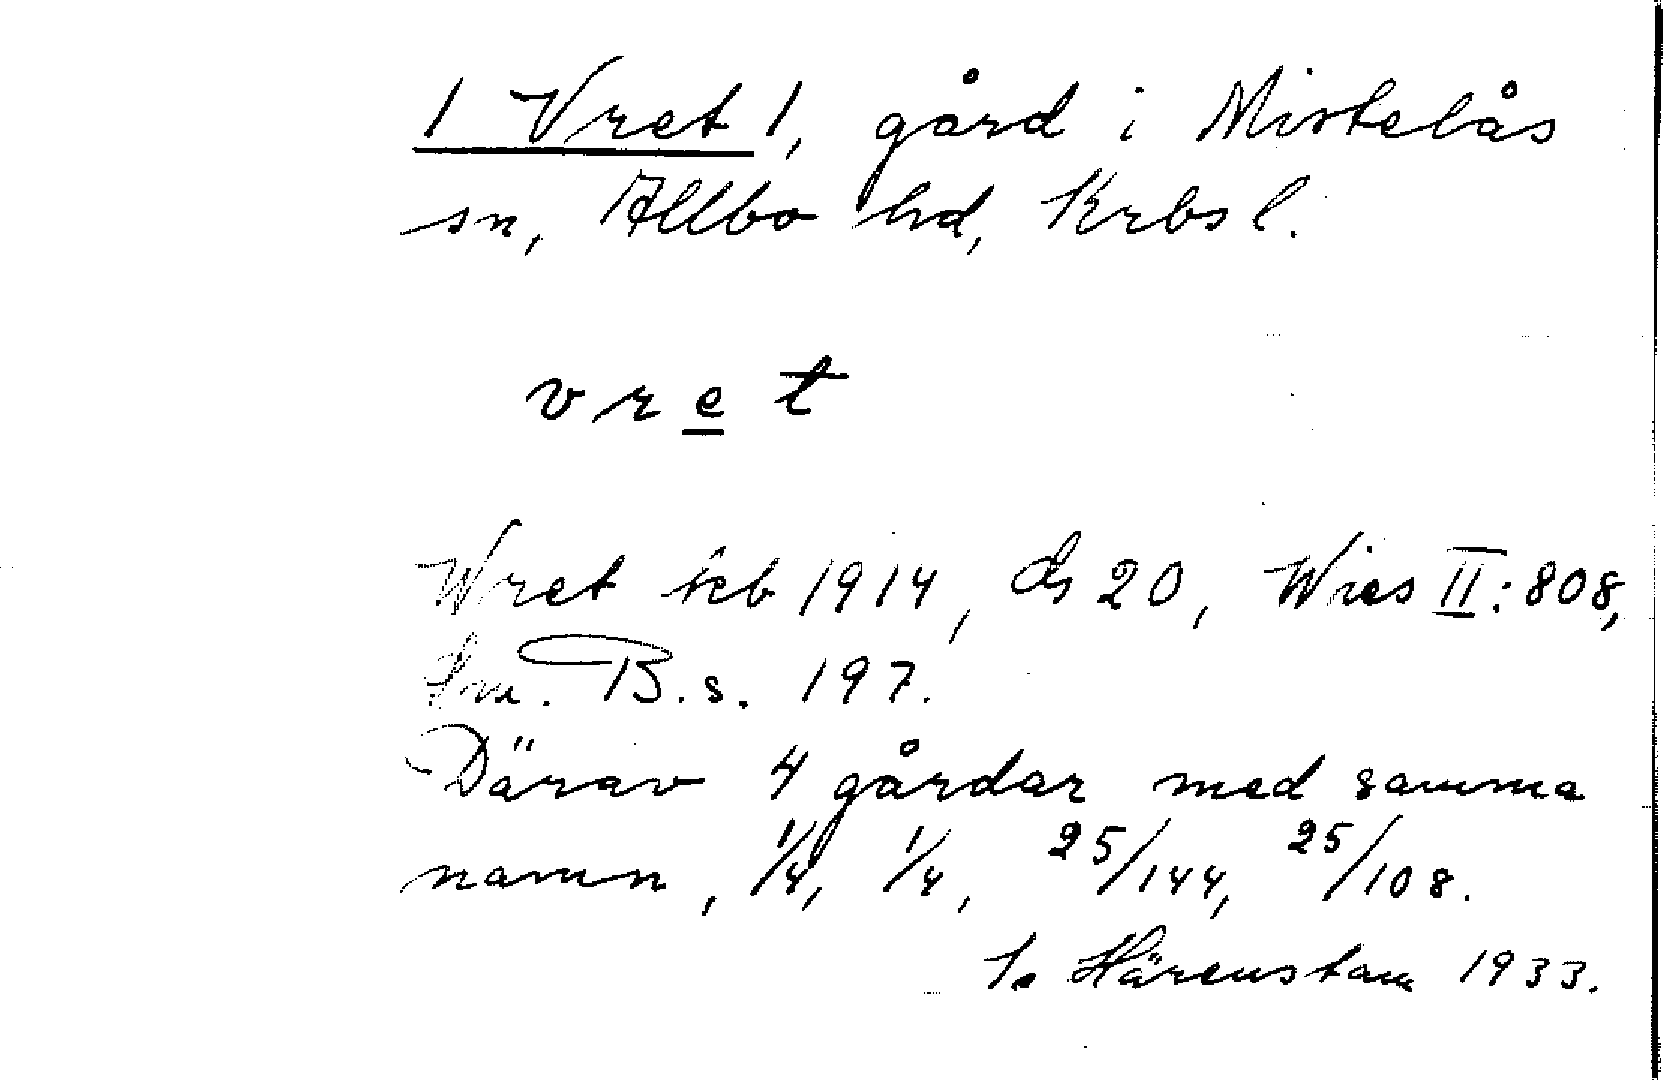 1 Vret 1, gård i Mistelås
sn, Allbo hd, Krbs l.
v r e t
Wret 1914, 20, Wies II: 808,
Sm. B. s. 197.
Därav 4 gårdar med samma
namn, 1/4, 1/4, 25/144, 25/108.
Härenstam 1933.